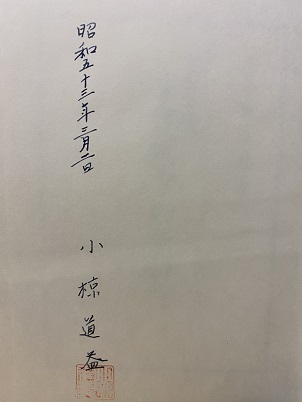 昭和五十三年三月二日
小椋道益